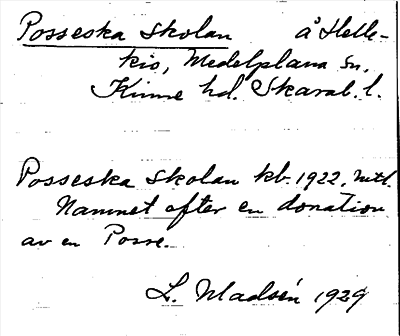 Posseska skolan å Helle-
kis, Medelplana sn,
Kinne hd. Skarab. l.
Posseska skolan kb. 1922. Mtl.
Namnet efter en donation
av en Posse.
L. Madsén 1929